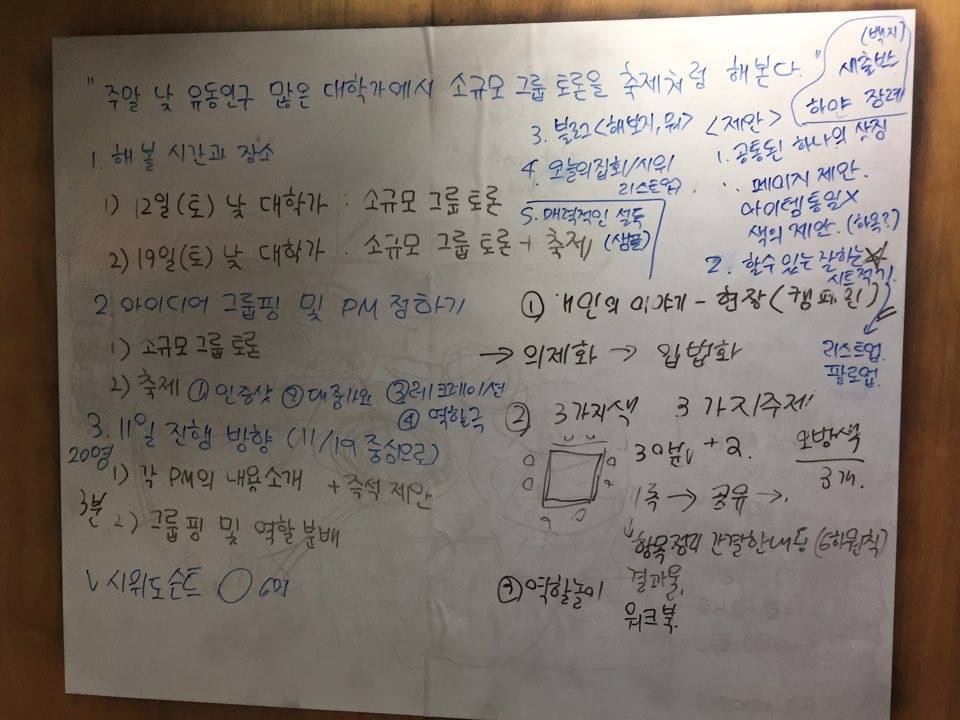 "주말 낮 유동인구 많은 대학가에서 소규모 그룹 토론을 축제처럼 해본다."
(백지)
새출반
하야 장례
1. 해볼 시간과 장소
1) 12일(토) 낮 대학가 : 소규모 그룹 토론
2) 19일(토) 낮 대학가 : 소규모 그룹 토론 + 축제
2. 아이디어 그룹핑 및 PM 정하기
1) 소규모 그룹 토론
2) 축제 ① 인증샷 ② 대중가요 ③ 레크레이션
④ 역할극
3. 11일 진행 방향 (11/19 중심으로)
20명
1) 각 PM의 내용소개 + 즉석 제안
3분
2) 그룹핑 및 역할분배
V 시위도슨트
3. 블로그 <해보지, 뭐>
4. 오늘의집회/시위
리스트업
5. 매력적인 설득
(샘플)
<제안>
1. 공통된 하나의 상징
페이지 제안.
아이템통일X
색의 제안. (하목?)
2. 할수 있는 잘하는
시트적기
리스트업.
팔로업.
① 개인의 이야기 - 현장 (캠페인)
→ 의제화 → 입법화
② 3가지색 3가지주제
30분 + 2.
오방색
3개.
1측 → 공유 →.
항목정리 간결한내용 (6하원칙)
결과물,
워크북.
③ 역할놀이